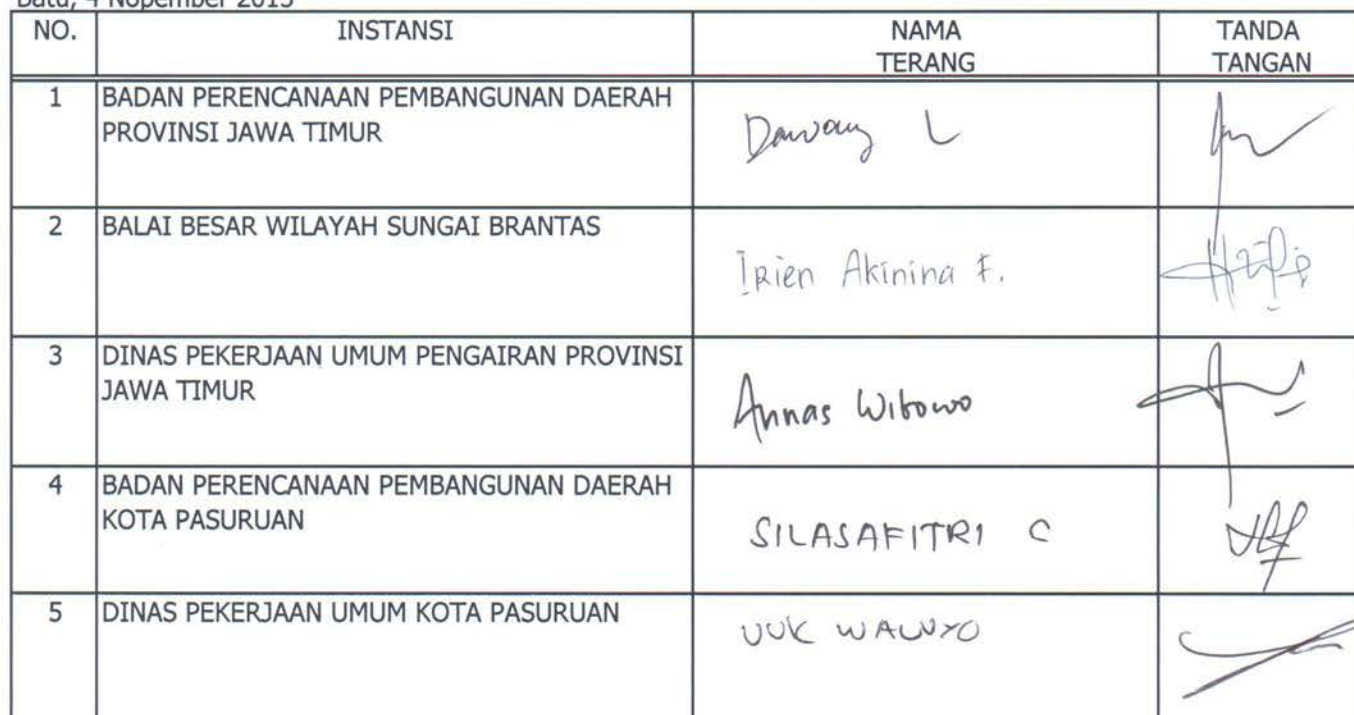 Batu, 4 Nopember 2015
NO. INSTANSI NAMA TERANG TANDA TANGAN
1 BADAN PERENCANAAN PEMBANGUNAN DAERAH
PROVINSI JAWA TIMUR
Dawang L
2 BALAI BESAR WILAYAH SUNGAI BRANTAS
Irien Akinina F.
3 DINAS PEKERJAAN UMUM PENGAIRAN PROVINSI
JAWA TIMUR
Annas Wibowo
4 BADAN PERENCANAAN PEMBANGUNAN DAERAH
KOTA PASURUAN
SILASAFITRI C
5 DINAS PEKERJAAN UMUM KOTA PASURUAN
UUK WALUYO